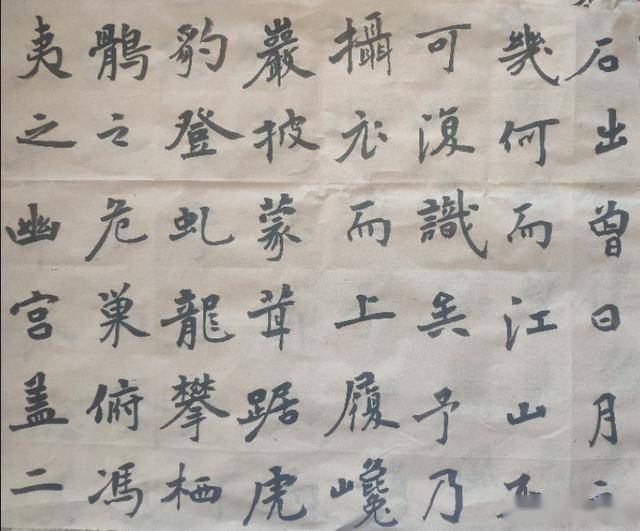 石出曾日月之
幾何而江山不
可復識矣予乃
攝衣而上履巉
巖披蒙茸踞虎
豹登虬龍攀栖
鶻之危巢俯馮
夷之幽宮盖二